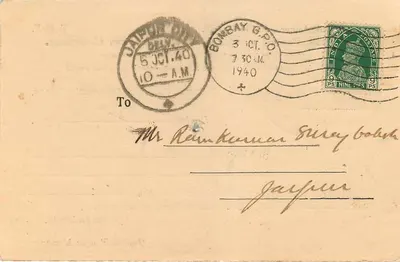 JAIPUR CITY
DELY.
5 OCT.40
10 – A.M.
BOMBAY G.P.O.
3 OCT.
7 30
1940
NINE PIES
To
Mr Ramkumar
Jaipur